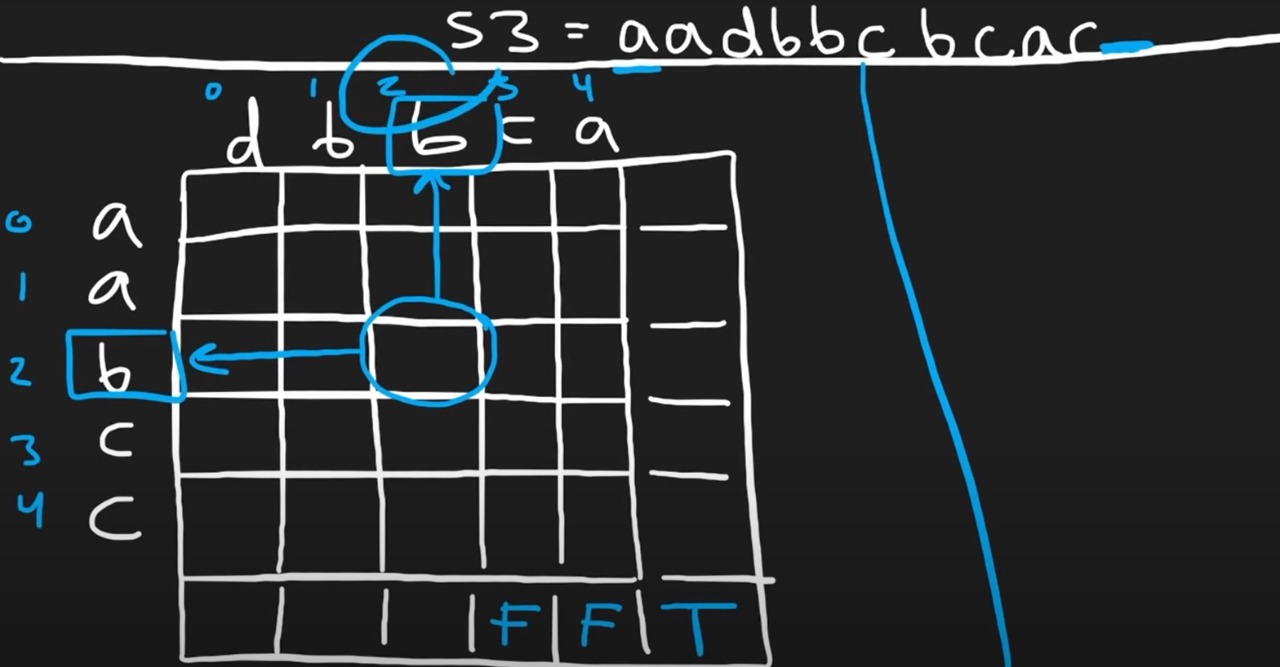 S3 = aadbbcbcac
0 1 2 3 4
d b b c a
0 a
1 a
2 b
3 c
4 c
F F T